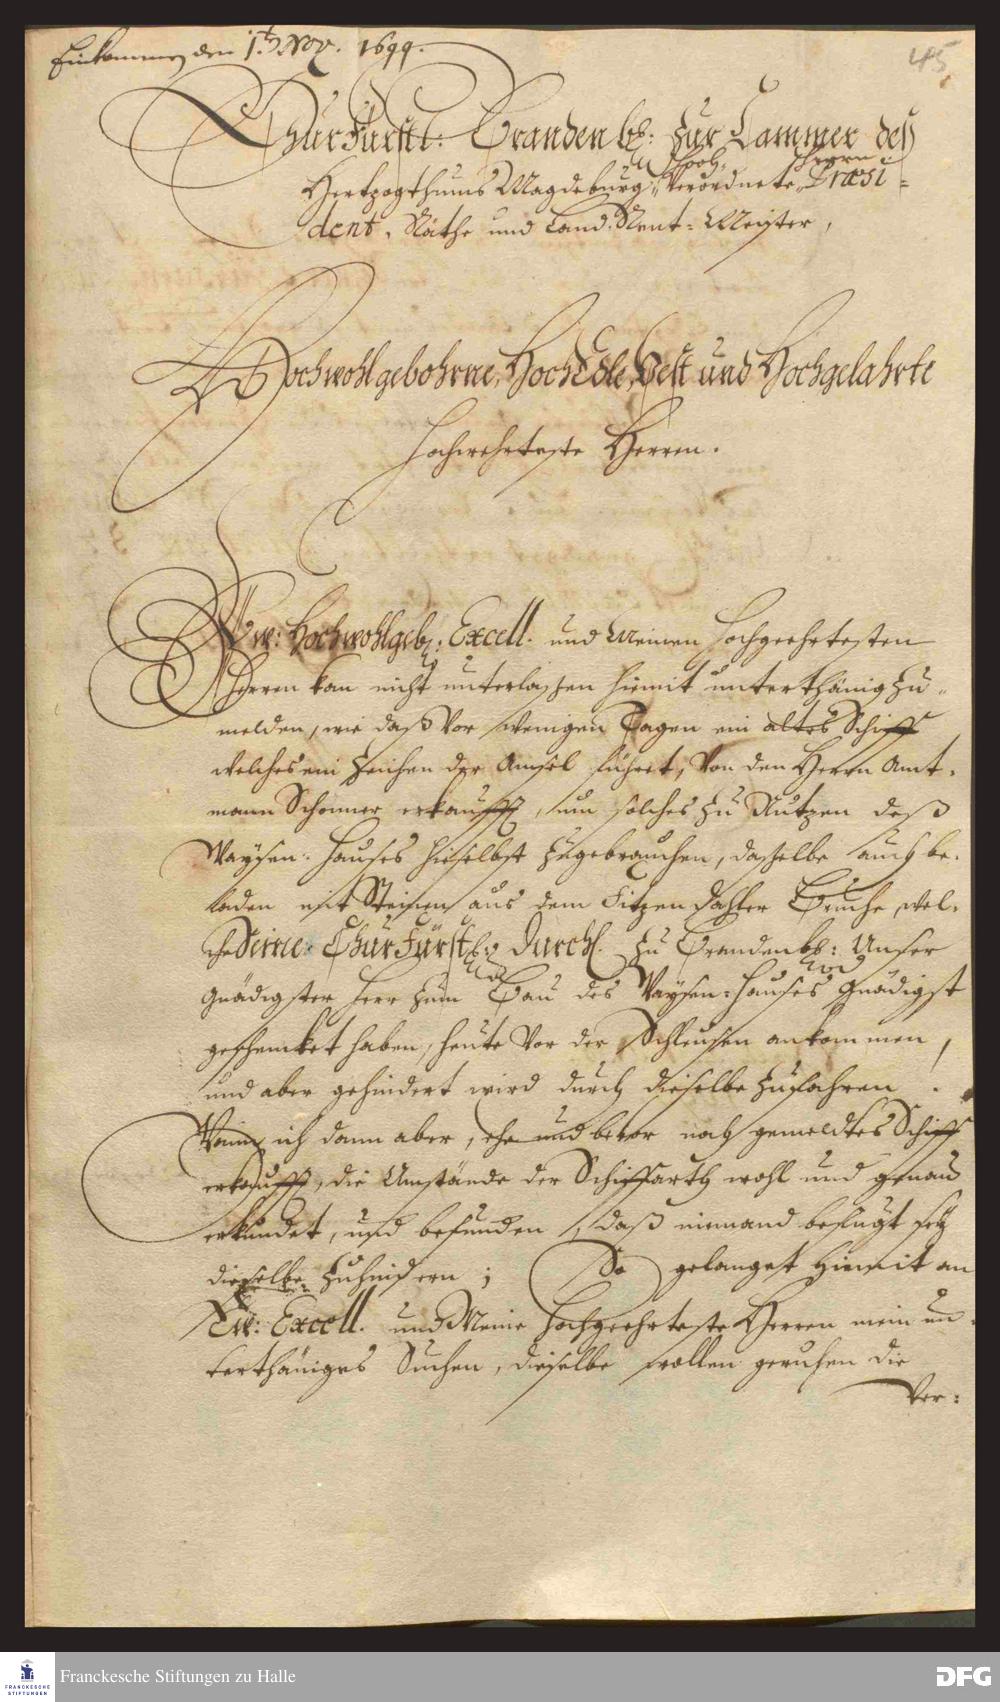 Einkommen den 1. Nov. 1699.
45
ChurFürstl: Brandenb: Zur Cammer des
Hertzogthums Magdeburg Verordnete Herrn Præsi=
dent, Räthe und Land-Rent-Meister,
Hochwohlgebohrne, HochEdle, Vest und Hochgelahrte
Hochwehrteste Herren.
Ew: Hochwohlgeb: Excell. und Meinen Hochgeehrtesten
Herren kan nicht unterlassen hiemit unterthänig zu
melden, wie daß vor wenigen Tagen ein altes Schiff
welches ein Zeichen der Amsel führet, von den Herrn Amt-
mann Schomer erkaufft, um solches zu Nutzen deß
Waysen-Hauses hieselbst zugebrauchen, dasselbe auch be-
laden mit Steinen aus dem Bruche, wel-
che Seine ChurFürstl: Durchl. zu Brandenb: Unser
Gnädigster Herr zum Bau des Waysen-Hauses Gnädigst
geschencket haben, heute vor der Schleusen ankommen,
und aber gehindert wird durch dieselbe zufahren.
Wann ich dann aber, ehe und bevor noch gemeldtes Schiff
erkaufft, die Umstände der Schiffarth wohl und genau
erkundet, und befunden, daß niemand befugt sey
dieselbe zuhindern; So gelanget hiemit an
Ew: Excell. und Meine Hochgeehrteste Herren mein un-
terthäniges Suchen, dieselbe wollen geruhen die
Ver=
FRANCKESCHE STIFTUNGEN
Franckesche Stiftungen zu Halle
DFG